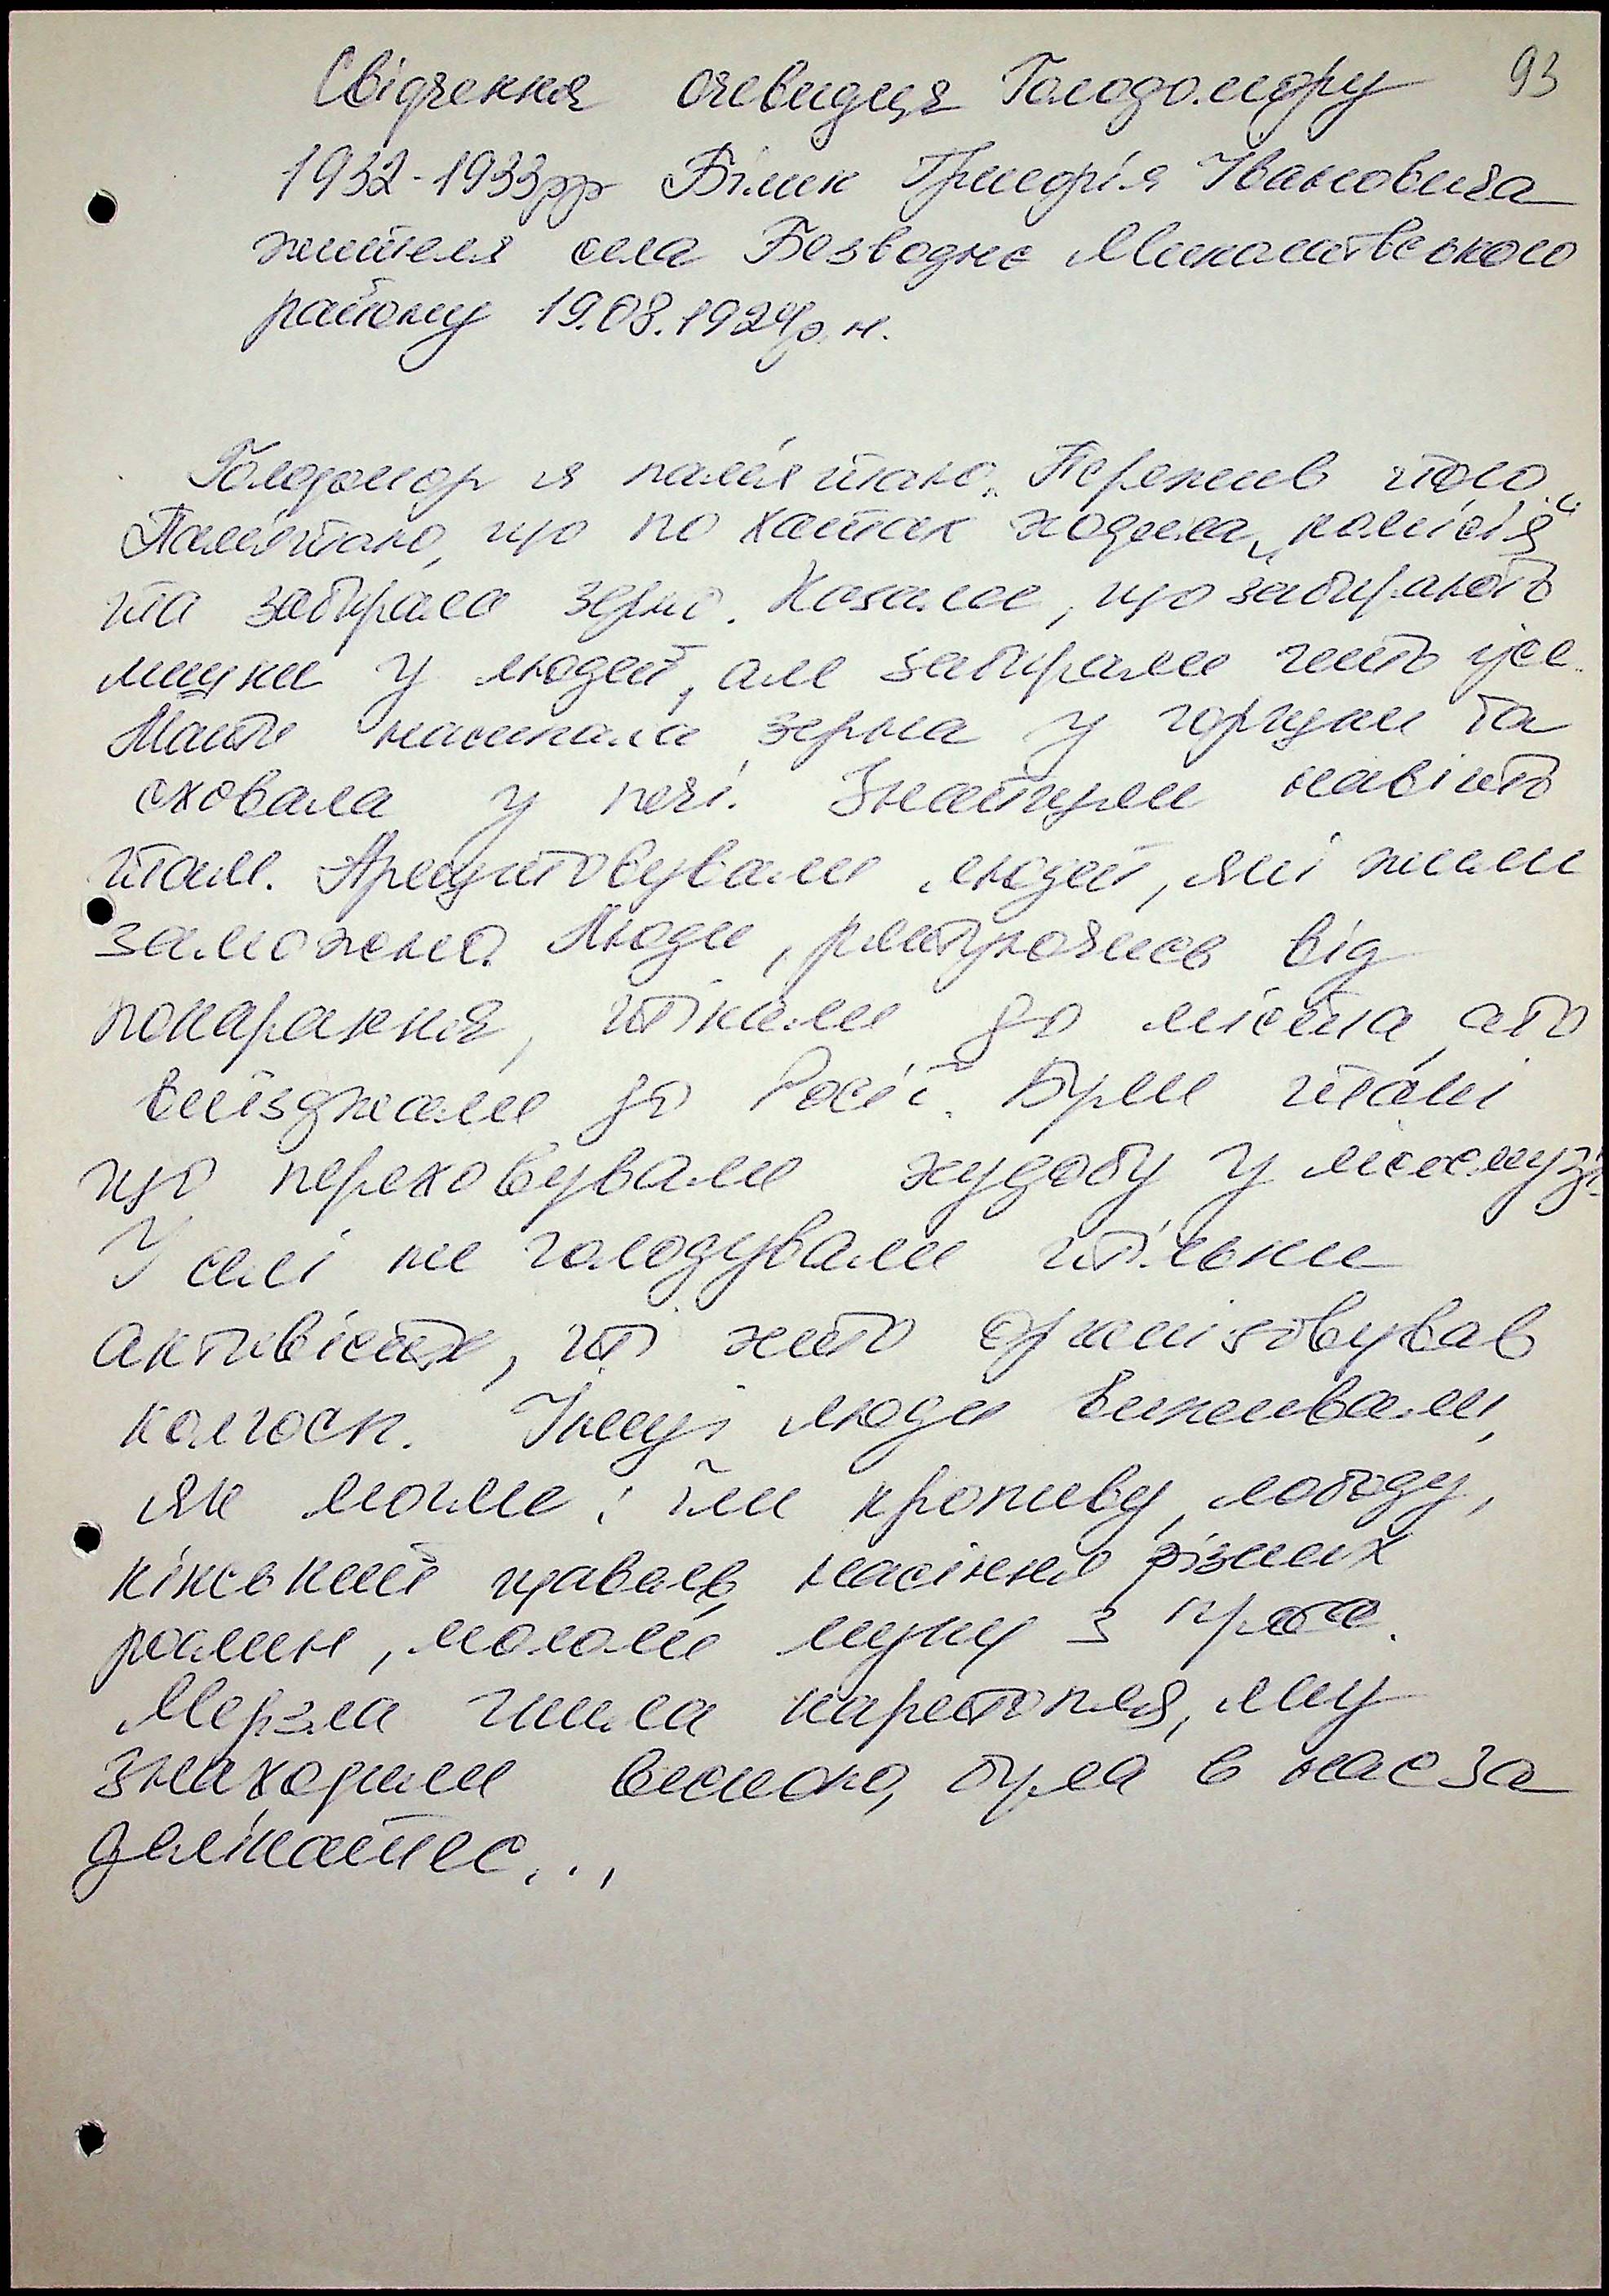 93
Свідчення очевидця Голодомору
1932-1933рр Білик Григорія Івановича
жителя села Безводне Миколаївського
району 19.08.1924р.н.
Голодомор я пам'ятаю. Пережив його.
Пам'ятаю, що по хатах ходила „комісія“
та забирала зерно. Казали, що забирають
лишки у людей, але забирали геть усе.
Мати насипала зерна у горщик та
сховала у печі. Знайшли навіть
там. Арештовували людей, які жили
заможно. Люди, рятуючись від
покарання, тікали до міста, або
виїзджали до Росії. Були такі
що переховували худобу у лісосмузі.
У селі не голодували тільки
активісти, ті хто організовував
колгосп. Інші люди виживали,
як могли: їли кропиву, лободу,
кінський щавель, насіння різних
рослин, мололи муку з проса.
Мерзла гнила картопля, яку
знаходили весною, була в нас за
делікатес...